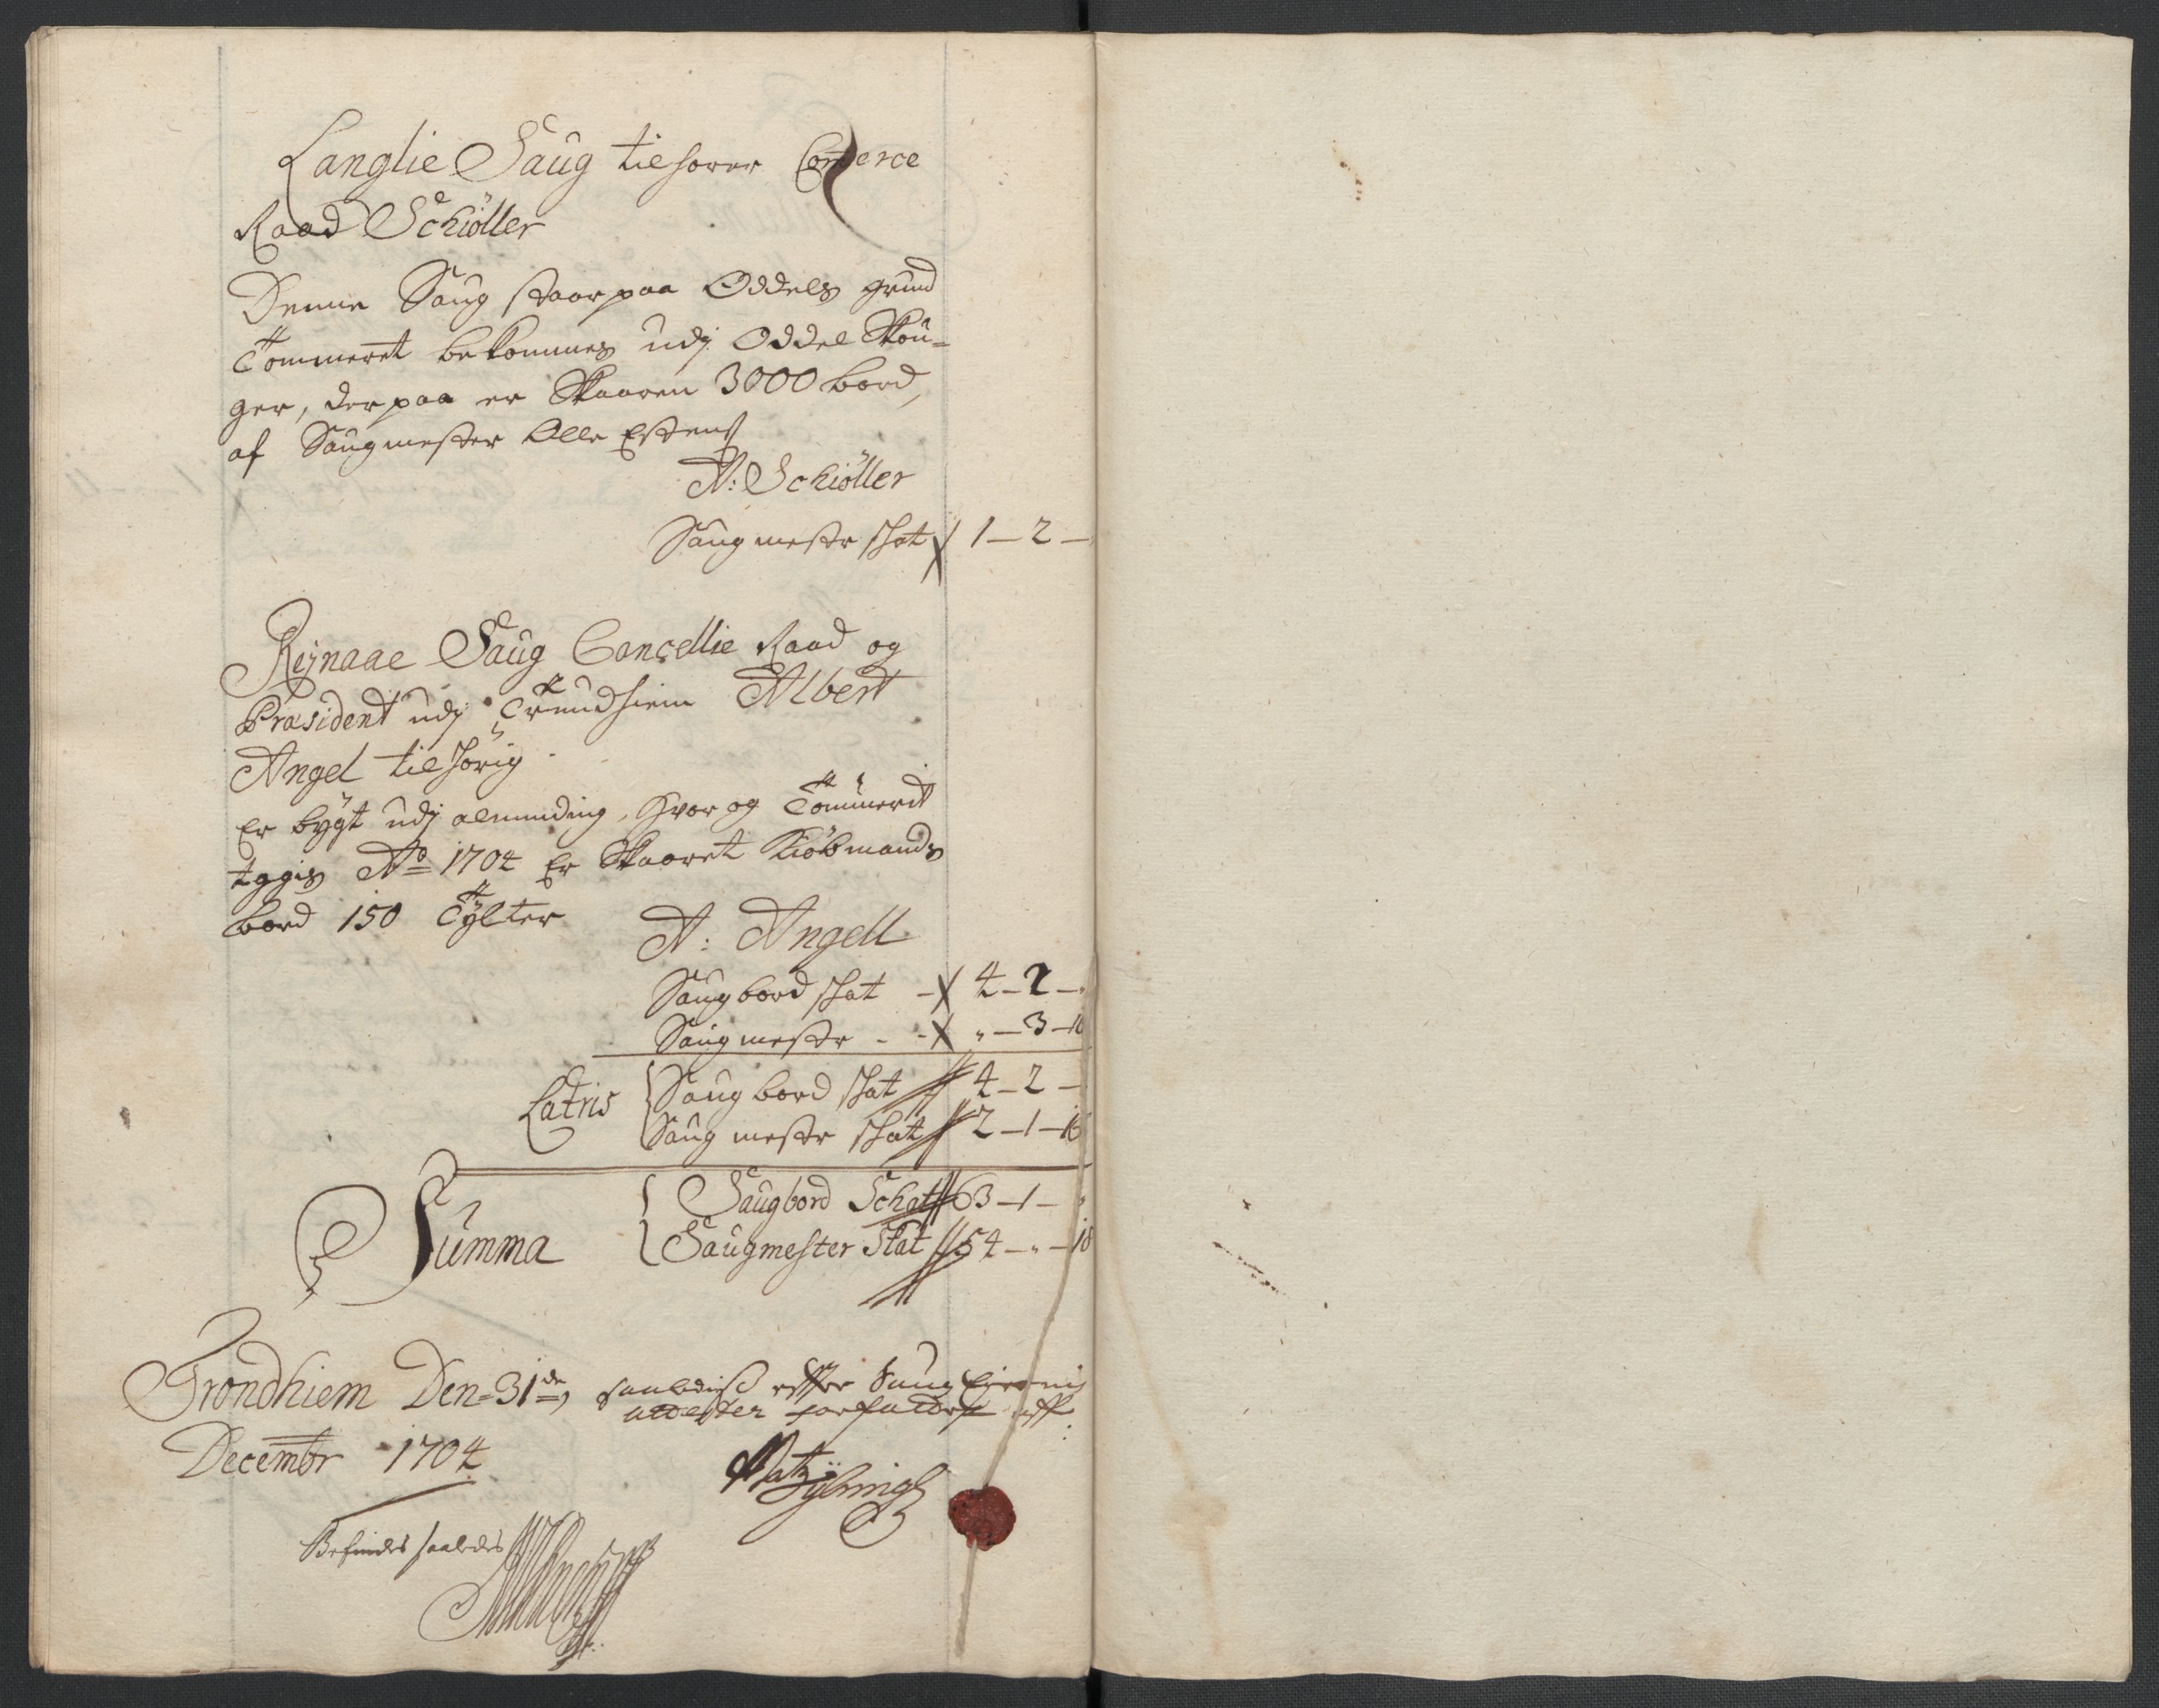 Langlie Saug tilhører Comerce
Raad Schiøller
Denne Saug staar paa Oddels grund
Tømmeret bekommes udj Oddel Skou-
ger, der paa er Skaaren 3000 bord,
af Saugmester Olle Estens
A: Schiøller
Saugmestr skat 1 – 2 –
Rejnaae Saug Cancellie Raad og
Præsident udj Trundhiem Albert
Angel tilhørig
Er bygt udj alminding, hvor og Tømmerit
tagis Ao 1704 Er Skaaret Kiøbmands
bord 150 Tÿlter
A: Angell
Saugbord skat – 4 – 2 – „
Saugmestr - - „ – 3 – 16
Latris { Saugbord skat 4 – 2 –
Saug mestr skat 2 – 1 – 16
Summa { Saugbord Schat 63 – 1 –
Saugmester Skat 54 – „ – 18
Trondhiem Den 31de, saaledis efter Saug
forfattet aff
Decembr 1704
Befindes saaledes